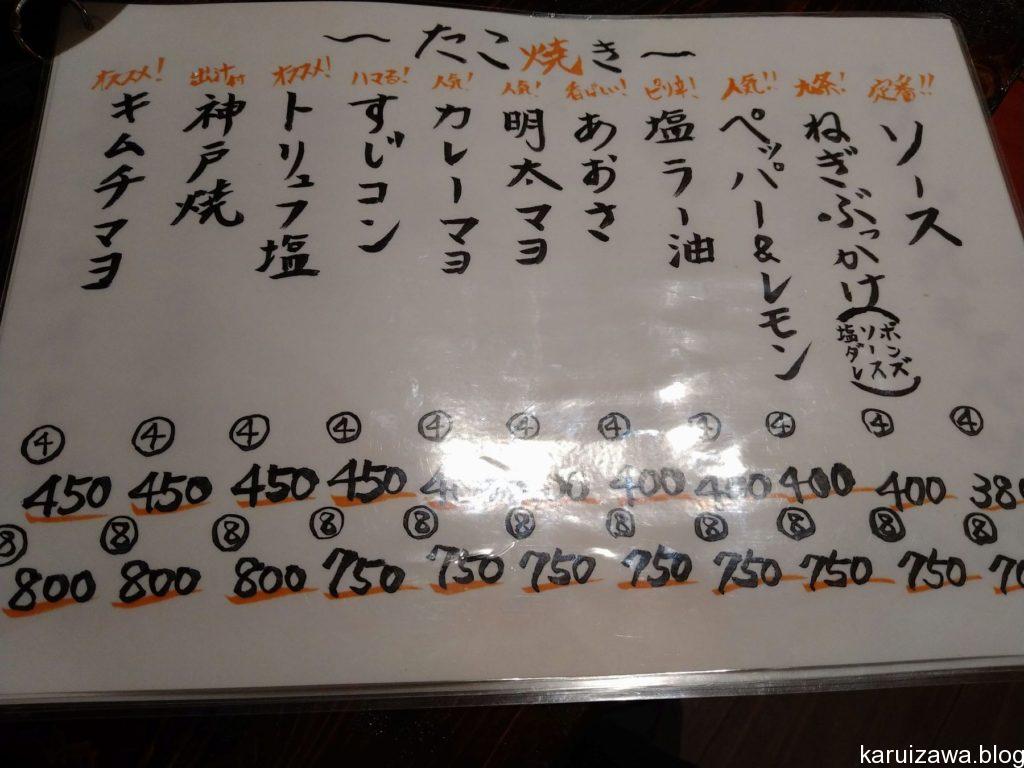 ～たこ焼き～
定番!!
ソース
④
⑧
九条!
ねぎぶっかけ
(ポンズ
ソース
塩ダレ)
④
400
⑧
750
人気!!
ペッパー&レモン
④
400
⑧
750
ピリ辛!
塩ラー油
④
⑧
750
香ばしい!
あおさ
④
400
⑧
750
人気!
明太マヨ
④
⑧
750
人気!
カレーマヨ
④
⑧
750
ハマる!
すじコン
④
450
⑧
750
オススメ!
トリュフ塩
④
450
⑧
800
出汁付
神戸焼
④
450
⑧
800
オススメ!
キムチマヨ
④
450
⑧
800
karuizawa.blog